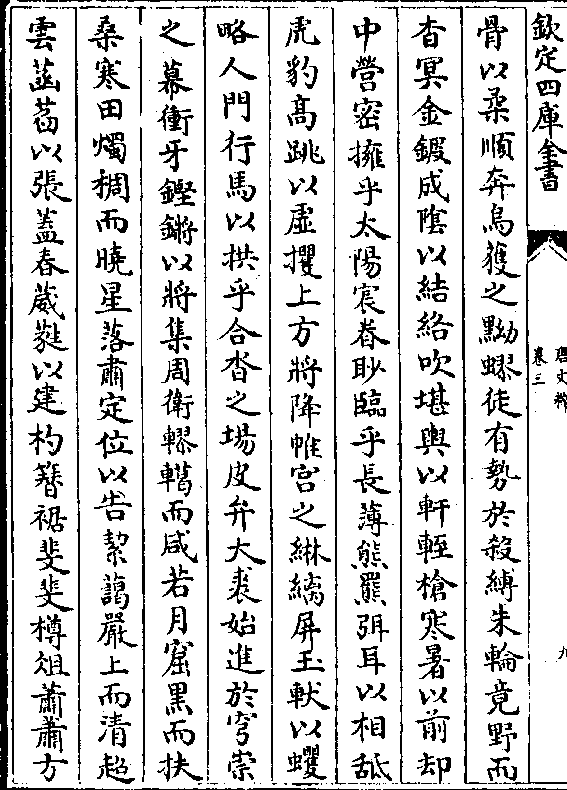 欽定四庫全書
唐文粹
卷三
九
骨以柔順奔烏獲之黝蟉徒有勢於殺縛朱輪竟野而
杳冥金鍐成陰以結絡吹堪輿以軒輊槍寒暑以前却
中營密擁乎太陽宸眷眇臨乎長薄熊羆弭耳以相舐
虎豹髙跳以虛攫上方將降帷宫之綝縭屏玉軑以蠼
略人門行馬以拱乎合沓之場皮弁大裘始進於穹崇
之幕衝牙鏗鏘以將集周衛轇轕而咸若月窟黑而扶
桑寒田燭稠而曉星落肅定位以告絜藹嚴上而清超
雲菡萏以張葢春葳蕤以建杓簪裾斐斐樽俎蕭蕭方